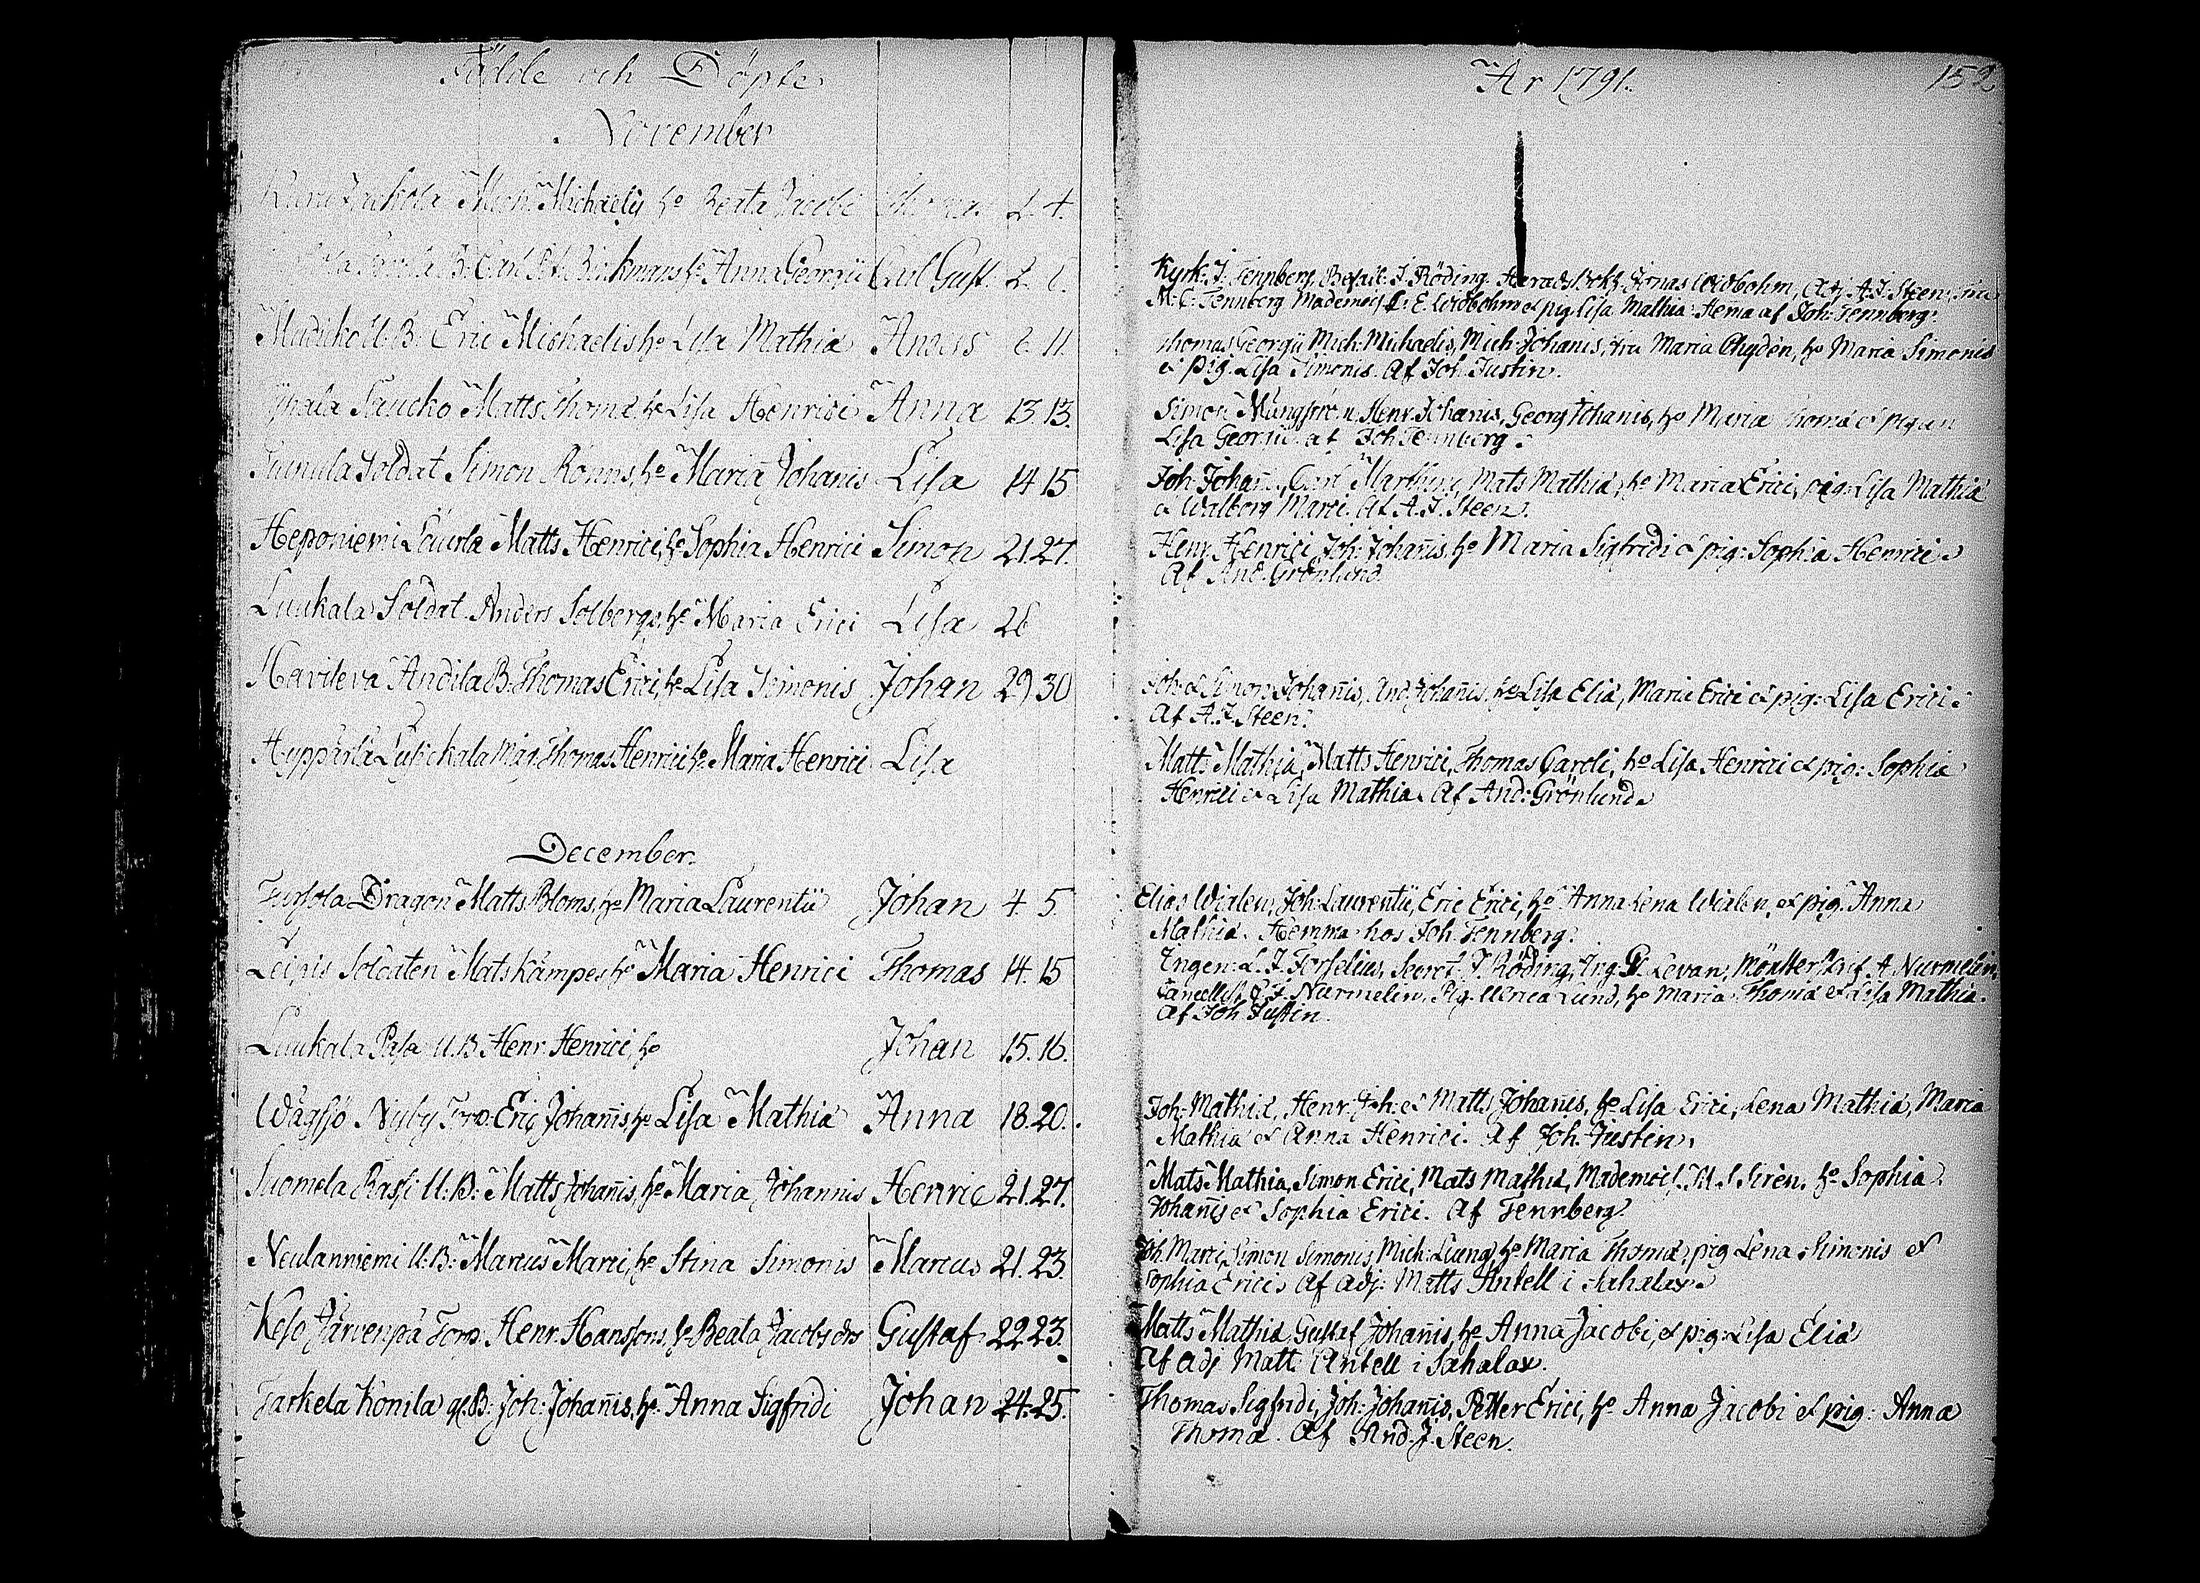 Födde och Döpte
November
Mich: Michaelis, ho Beata Jacobi Thomas 2. 4.
B: Carl Birkmans ho Anna Georgii Carl Gust. 2. 6.
U: B: Eric Michaelis ho Lisa Mathiæ Anders 6. 11.
Saucko Matts Thomæ ho Lisa Henrici Anna 13. 13.
Soldat Simon Rönns, ho Maria Johanis Lisa 14 15
Heponiemi Laurla Matts Henrici, ho Sophia Henrici Simon 21. 27.
Luukala Soldat Anders Solbergs, ho Maria Erici Lisa 26
Havileva Andila B. Thomas Erici, ho Lisa Simonis Johan 29 30
Hyppärlä Måg. Thomas Henrici ho Maria Henrici Lisa
December.
Dragon Matts Bloms, ho Maria Laurentii Johan 4. 5.
Soldaten Mats Kämpes ho Maria Henrici Thomas 14. 15
Luukala Pasa U.B. Henr. Henrici, ho Johan 15. 16.
Wågsjö Nyby Torp. Eric Johanis, ho Lisa Mathiæ Anna 18. 20.
Suomela Rassi U: B: Matts Johanis, ho Maria Johannis Henric 21. 27.
Neulanniemi U: B: Marcus Marci, ho Stina Simonis Marcus 21. 23.
Keso Järvenpä Torp. Henr. Hanssons, ho Beata Jacobs dr Gustaf 22 23.
Tarkela Konila B: Joh: Johanis, ho Anna Sigfridi Johan 24. 25.
År 1791. 152
Kyrk. J. Tennberg, Befall. J. Röding. Jonas Widbohm, Adj. A. J. Steen,
M: C: Tennberg Mademois. E. Widbohm et pig. Lisa Mathiæ. Hema af Joh: Tennberg.
Thomas Georgii Mich: Michaelis, Mich: Johanis, fru Maria Chydén, ho Maria Simonis
et pig. Lisa Simonis. Af Joh. Justin.
Simon Henr. Johanis, Georg Johanis, ho Maria Thomæ et pigan
Lisa Georgii af Joh Tennberg.
Joh: Johanis, Carl Mats Mathiæ, ho Maria Erici, pig: Lisa Mathiæ
et Walborg Marci. Af A. J. Steen.
Henr. Henrici, Joh: Johanis, ho Maria Sigfridi et pig: Sophia Henrici
Af And. Grönlund.
Joh. et Simon Johanis, And. Johanis, ho Lisa Eliæ, Maria Erici et pig: Lisa Erici
Af A. J. Steen.
Matts Mathiæ, Matts Henrici, Thomas Caroli, ho Lisa Henrici et pig: Sophia
Henrici et Lisa Mathiæ. Af And: Grönlund.
Elias Wialen, Joh: Laurentii, Eric Erici, ho Anna Lena Wialen, et pig. Anna
Mathiæ. Hemma hos Joh. Tennberg.
Ingen: L. J. Forselius, Secret. J. Röding, Ing. Levan, Mönster Skrif. A. Nurmelin,
Cancellist. J. Nurmelin, Pig. Ulrica Lund, ho Maria Thomæ et Lisa Mathiæ.
Af Joh Justin.
Joh: Mathiæ, Henr. Joh: et Matts Johanis, ho Lisa Erici, Lena Mathiæ, Maria
Mathiæ et Anna Henrici. Af Joh. Justin.
Mats Mathiæ, Simon Erici, Mats Mathiæ, Mademois. Siren, ho Sophia
Johanis et Sophia Erici. Af Tennberg.
Joh. Marci, Simon Simonis, Mich: Liung, ho Maria Thomæ, pig Lena Simonis et
Sophia Erici. Af adj: Matts Antell i Sahalax.
Matts Mathiæ, Gustaf Johanis, ho Anna Jacobi, et pig: Lisa Eliæ
Af adj Matt. Antell i Sahalax.
Thomas Sigfridi, Joh: Johanis, Petter Erici, ho Anna Jacobi et pig: Anna
Thomæ. Af And. J. Steen.